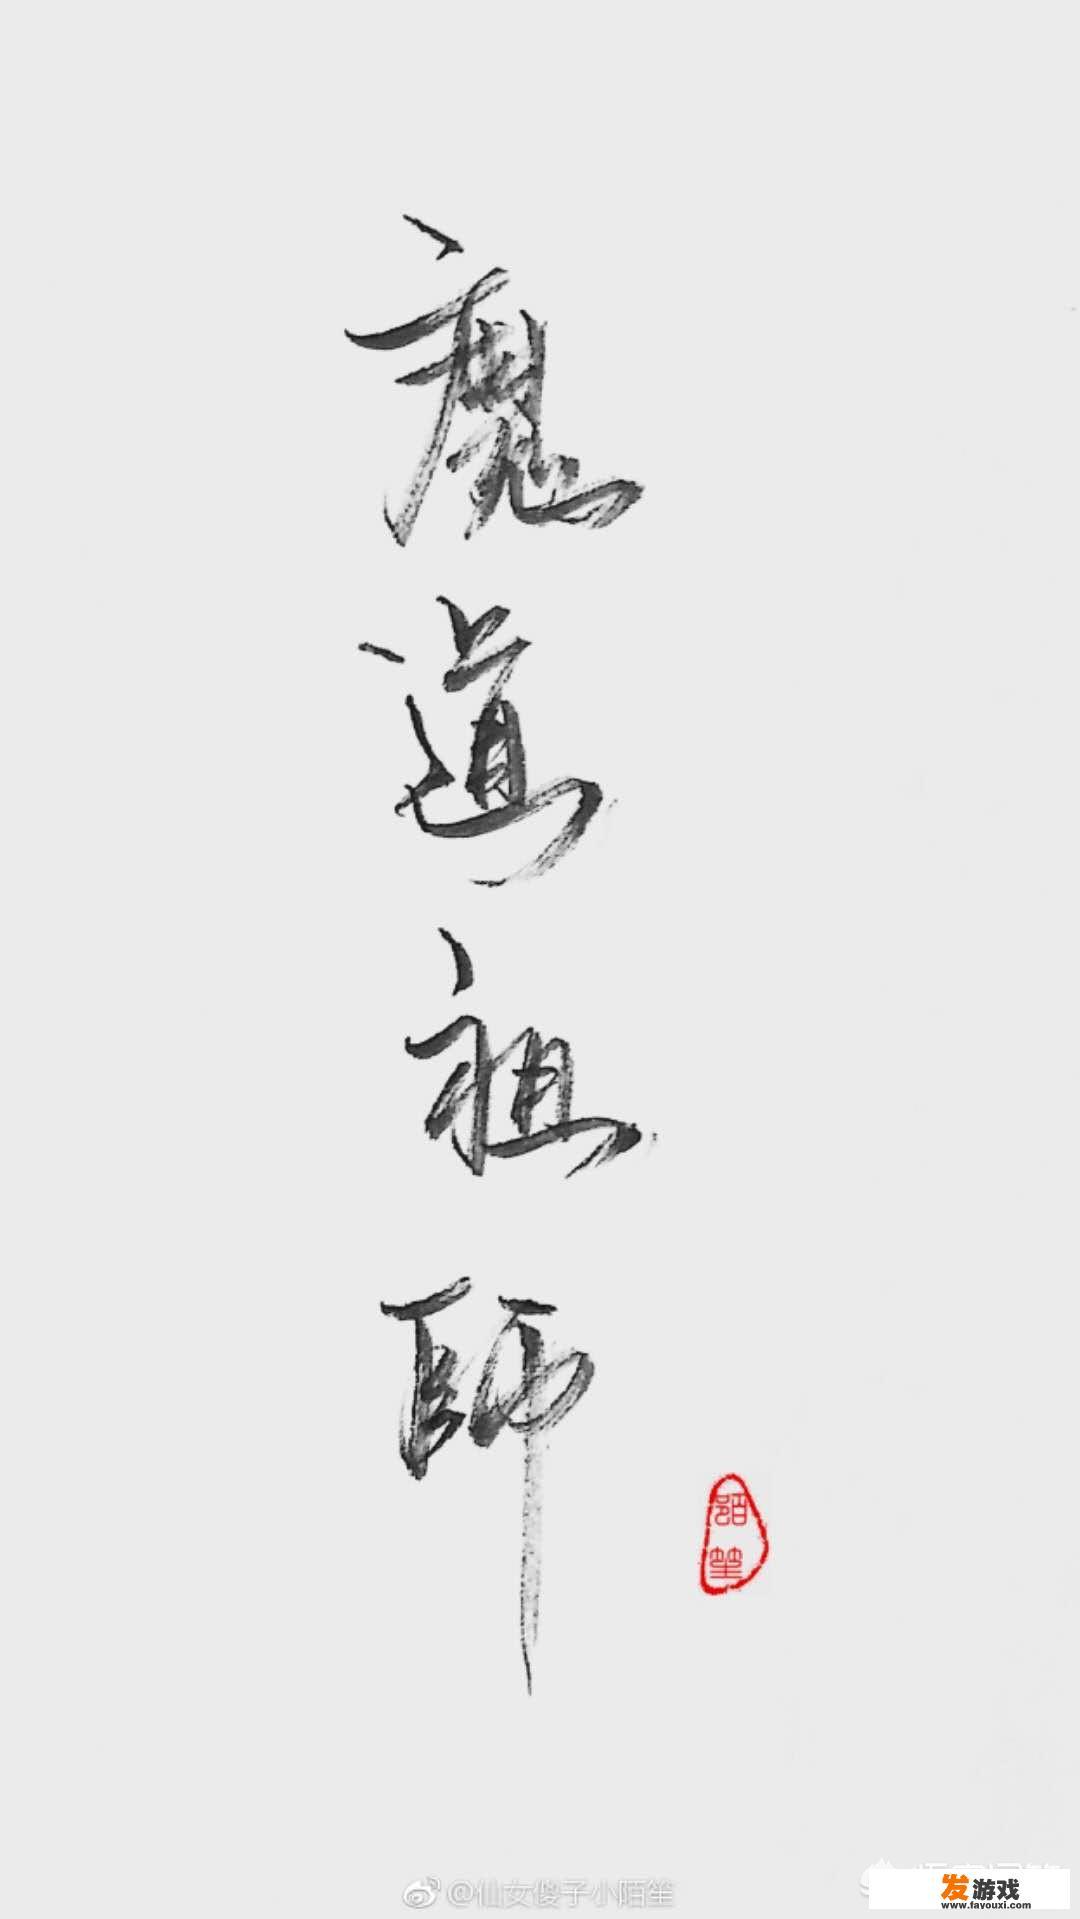 魔
道
祖
師
陌
笙
@仙女傻子小陌笙
发游戏
www.fayouxi.com